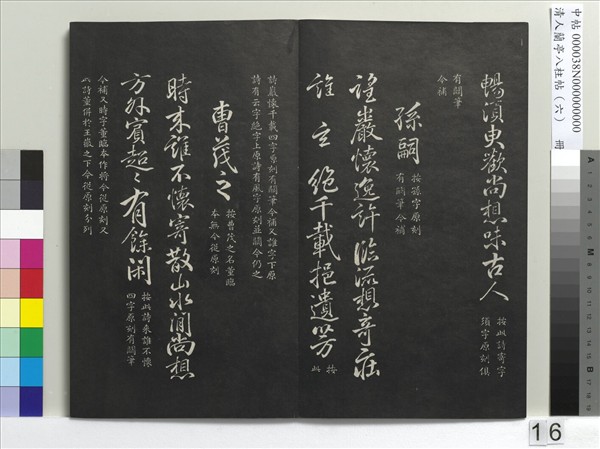 暢須臾歡尚想味古人
按此詩寄字
須字原刻俱
有闕筆
今補
孫嗣
按孫字原刻
有闕筆今補
望巖懷逸許臨流想奇莊
誰云絶千載挹遺芳
按
此
詩巖懷千載四字原刻有闕筆今補又誰字下原
詩有云字絶字上原詩有風字原刻並闕今仍之
曹茂之
按曹茂之名董臨
本無今從原刻
時來誰不懷寄散山水間尚想
方外賓超〻有餘閑
按此詩來誰不懷
四字原刻有闕筆
今補又時字董臨本作將今從原刻又
此詩董併於王徽之下今從原刻分列
中帖 000038N000000000
清人蘭亭八柱帖（六） 冊
16